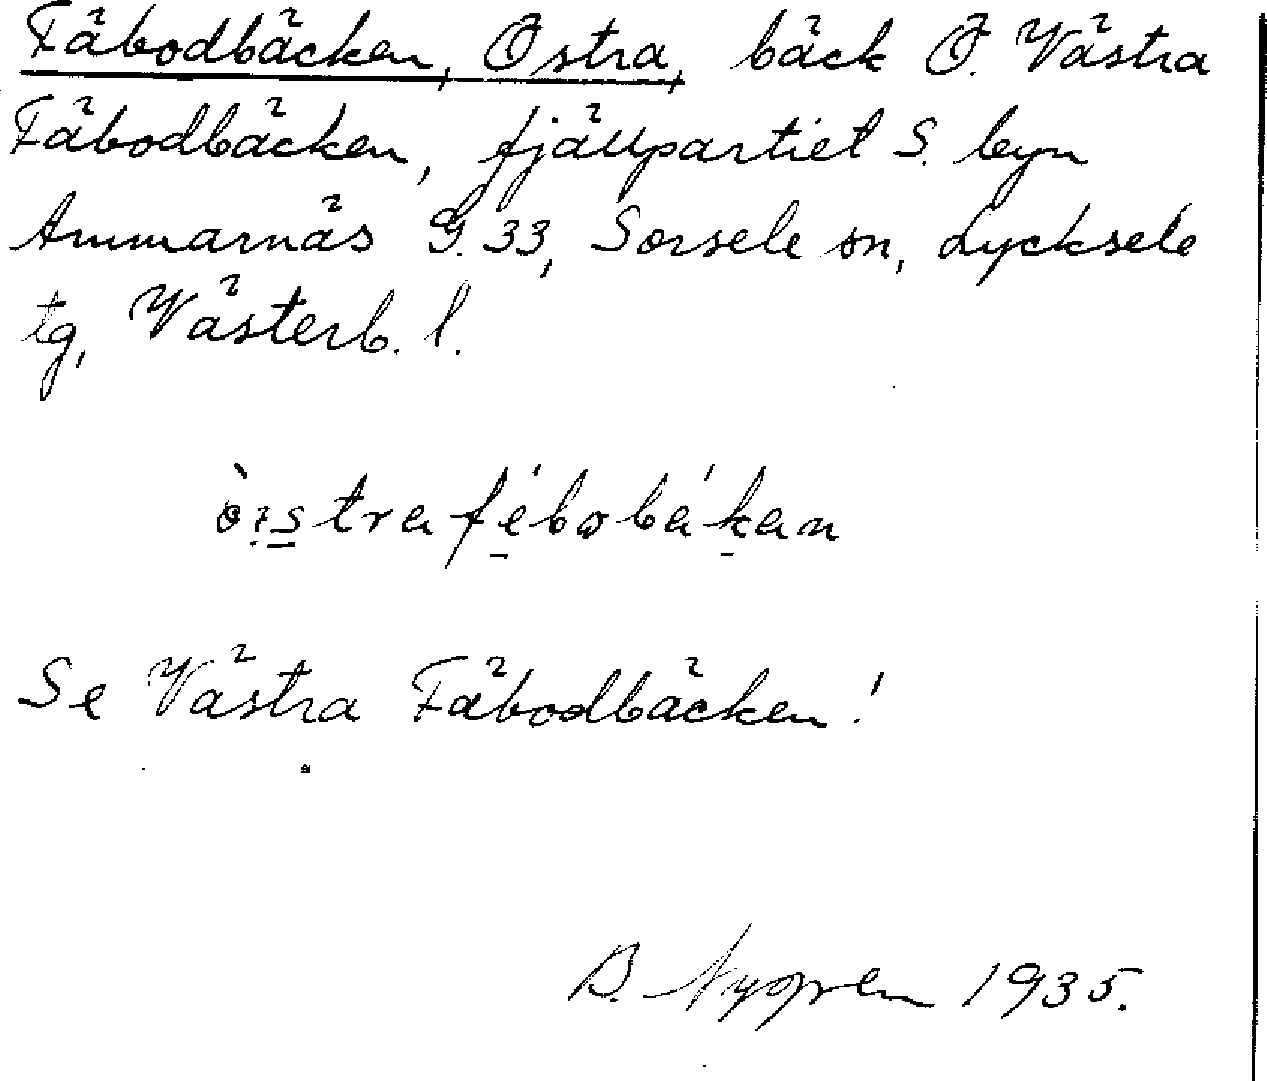 Fäbodbäcken, Östra, bäck Ö. Västra
Fäbodbäcken, fjällpartiet S. byn
Ammarnäs G. 33, Sorsele sn, Lycksele
tg, Västerb. l.
Se Västra Fäbodbäcken!
B. Nygren 1935.